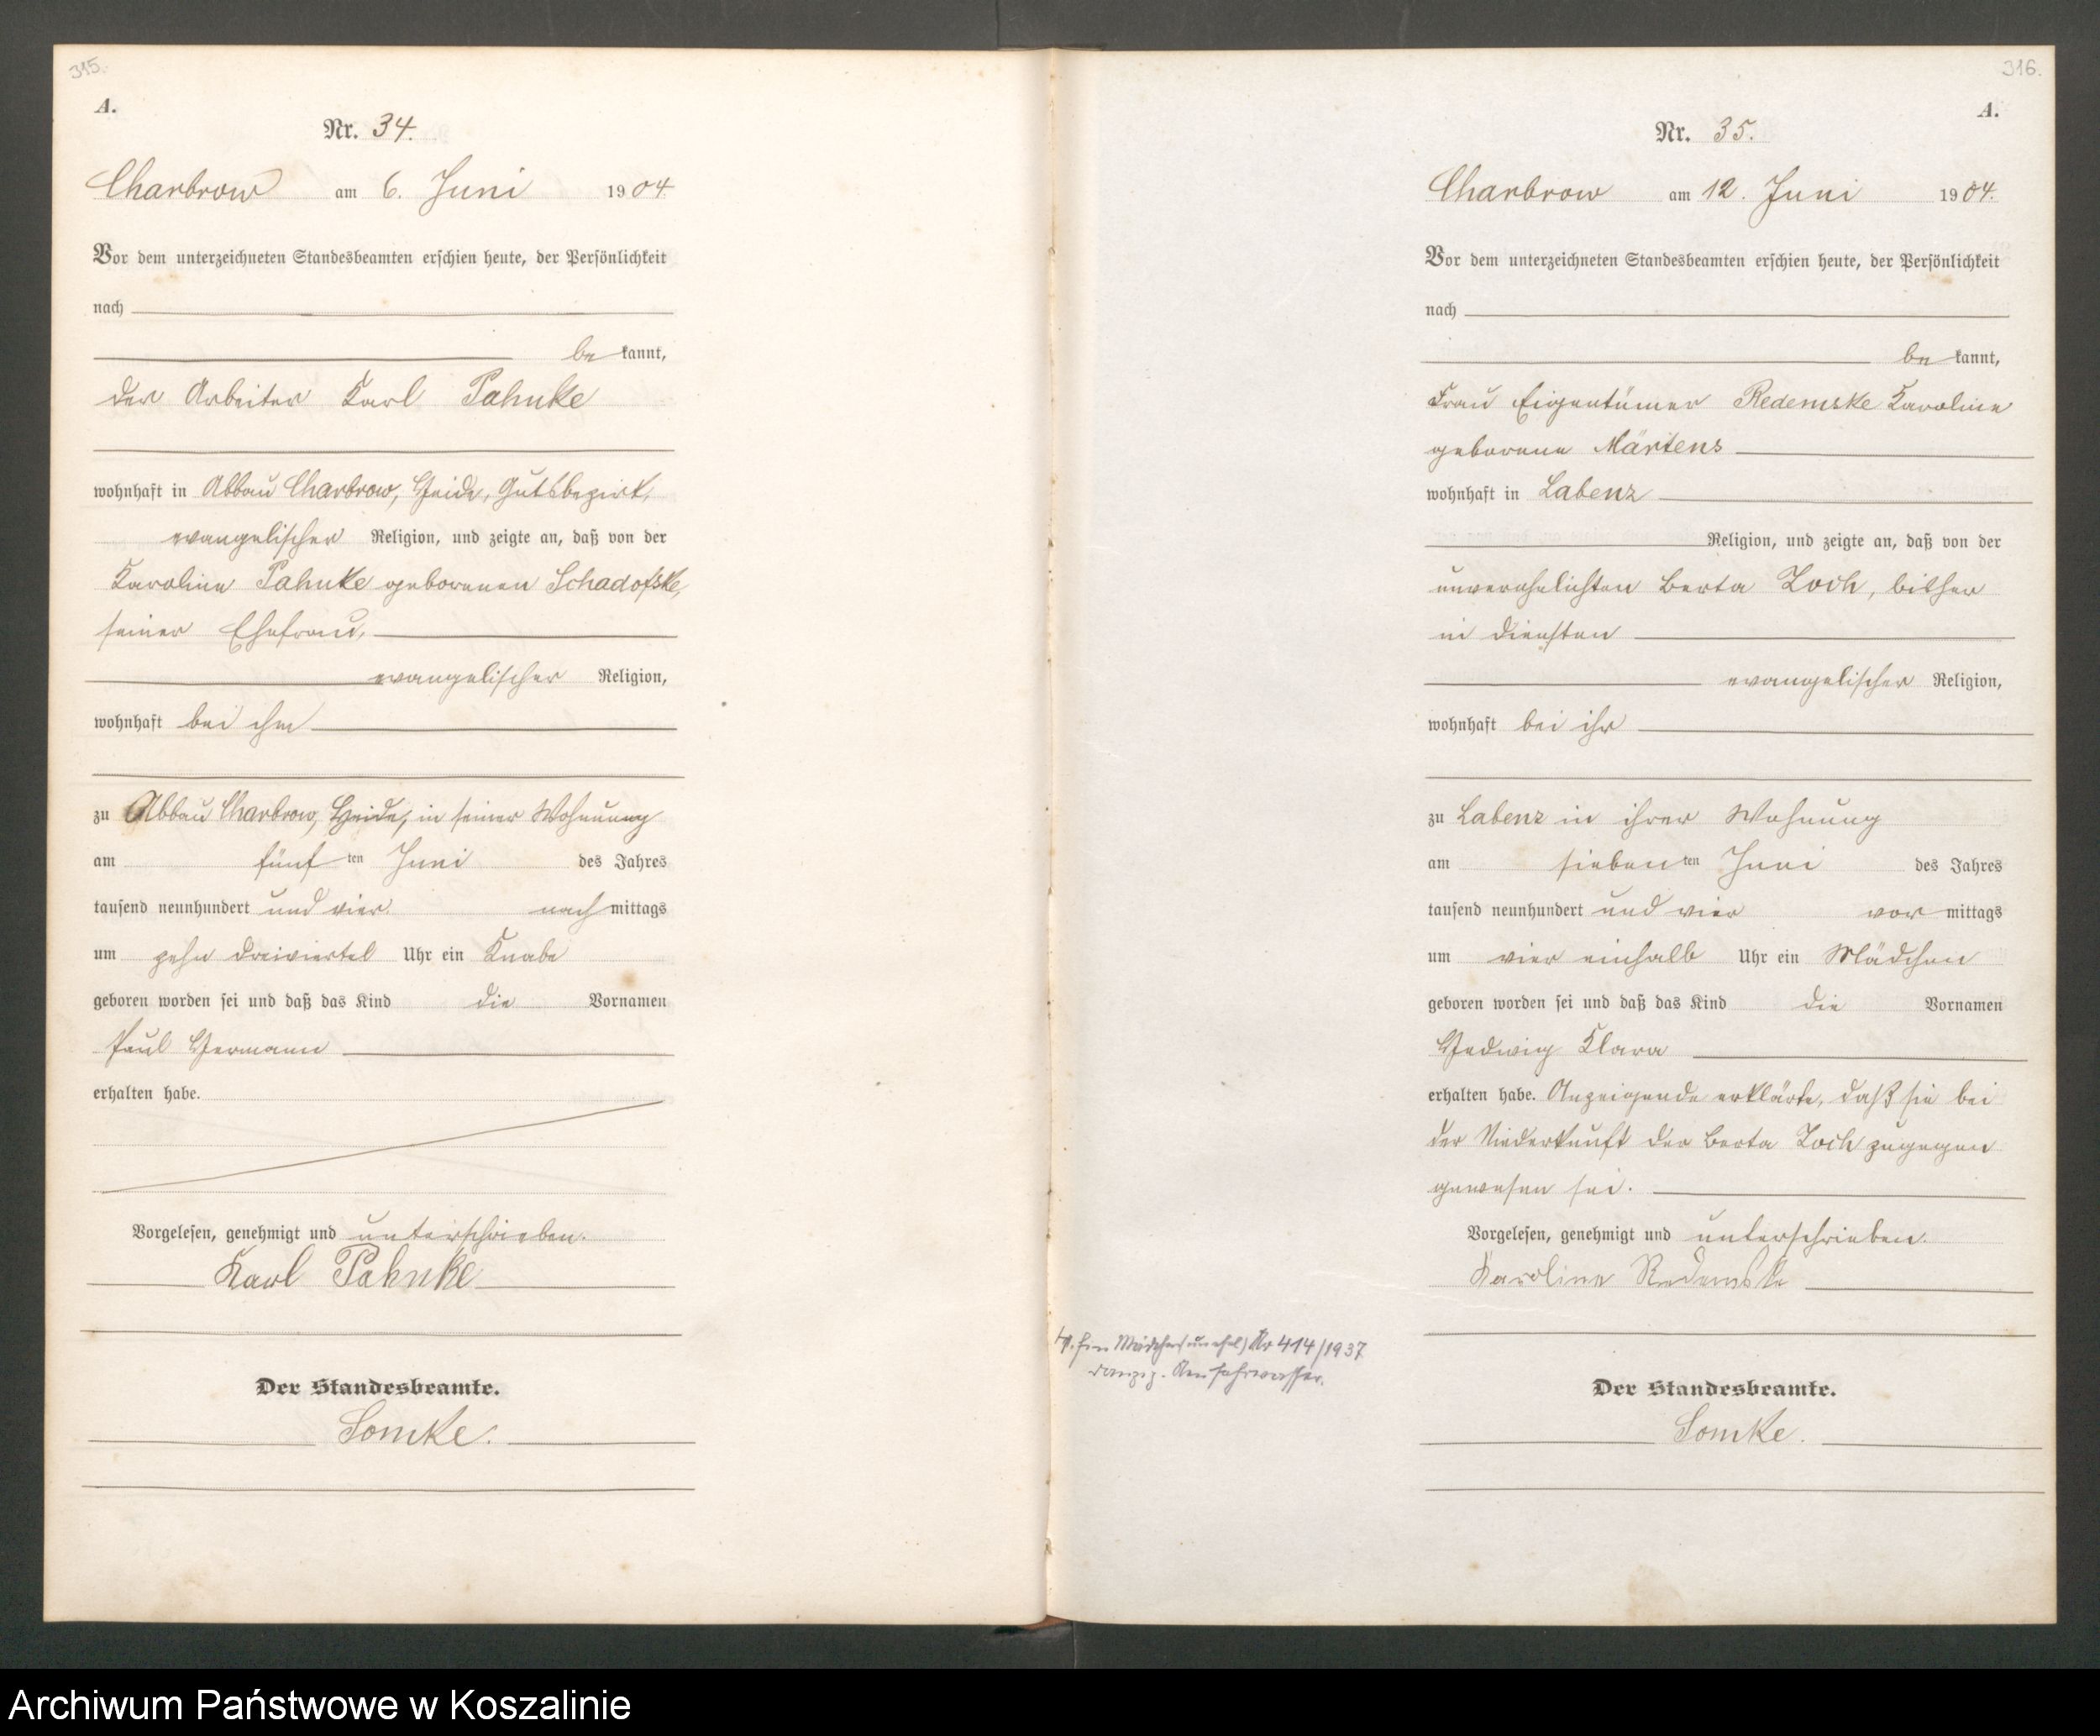 315.
A.
Nr. 34.
Charbrow am 6. Juni 1904
Vor dem unterzeichneten Standesbeamten erschien heute, der Persönlichkeit
nach
be kannt,
der Arbeiter Karl Pahnke
wohnhaft in Abbau Charbrow, Heide, Gutsbezirk,
evangelischer Religion, und zeigte an, daß von der
Karoline Pahnke geborenen Schadofske,
seiner Ehefrau,
evangelischer Religion,
wohnhaft bei ihm
zu Abbau Charbrow, Heide, in seiner Wohnung
am fünf ten Juni des Jahres
tausend neunhundert und vier nach mittags
um zehn dreiviertel Uhr ein Knabe
geboren worden sei und daß das Kind die Vornamen
Paul Hermann
erhalten habe.
Vorgelesen, genehmigt und unterschrieben.
Karl Pahnke
Der Standesbeamte.
Somke.
316.
A.
Nr. 35.
Charbrow am 12. Juni 1904.
Vor dem unterzeichneten Standesbeamten erschien heute, der Persönlichkeit
nach
be kannt,
Frau Eigentümer Redemske Karoline
geborene Märtens
wohnhaft in Labenz
Religion, und zeigte an, daß von der
unverehelichten Berta Zoch, bisher
in Diensten
evangelischer Religion,
wohnhaft bei ihr
zu Labenz in ihrer Wohnung
am sieben ten Juni des Jahres
tausend neunhundert und vier vor mittags
um vier einhalb Uhr ein Mädchen
geboren worden sei und daß das Kind die Vornamen
Hedwig Klara
erhalten habe. Anzeigende erklärte, daß sie bei
der Niederkunft der Berta Zoch zugegen
gewesen sei.
Vorgelesen, genehmigt und unterschrieben.
Karoline Redemske
ein Mädchen (unehel) Nr 414/1937
Danzig. Neufahrwasser.
Der Standesbeamte.
Somke.
Archiwum Państwowe w Koszalinie